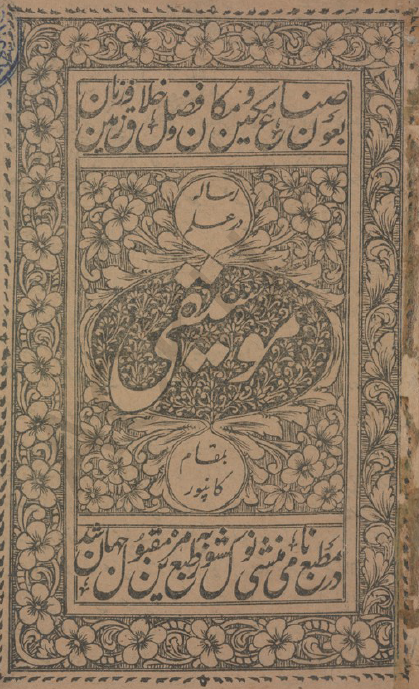 بعون صناع مکین و مکان و فضل خلاق زمین و زمان
رساله
در علم
موسیقی
بمقام
کانپور
در مطبع نامی منشی نولکشور بطبع مزین مقبول جهان شد